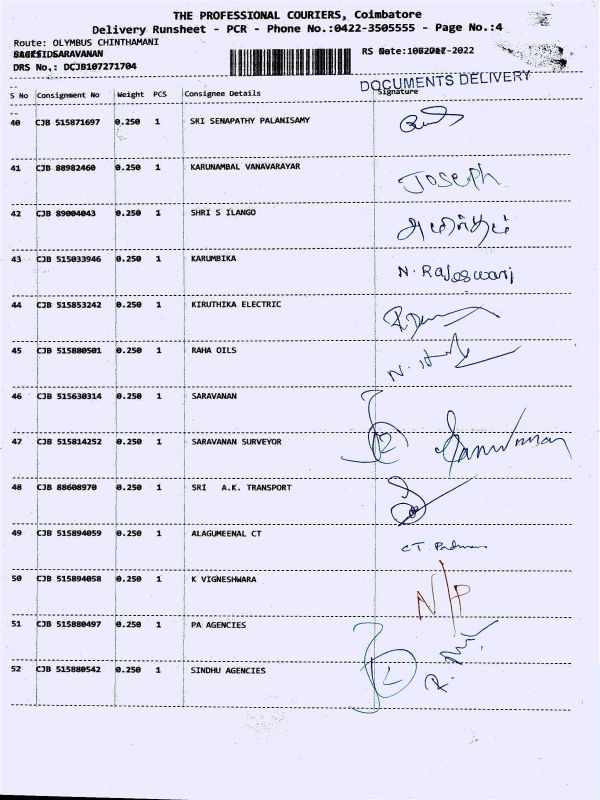 THE PROFESSIONAL COURIERS, Coimbatore
Delivery Runsheet - PCR - Phone No.:0422-3505555 - Page No.:4
Route: OLYMBUS CHINTHAMANI
RS Date:
DRS No.: DCJB107271704
DOCUMENTS DELIVERY
S No Consignment No Weight PCS Consignee Details Signature
40 CJB 515871697 0.250 1 SRI SENAPATHY PALANISAMY
41 CJB 88982460 0.250 1 KARUNAMBAL VANAVARAYAR Joseph
42 CJB 89004043 0.250 1 SHRI S ILANGO
43 CJB 515033946 0.250 1 KARUMBIKA N. Rajeswari
44 CJB 515853242 0.250 1 KIRUTHIKA ELECTRIC
45 CJB 515880501 0.250 1 RAHA OILS
46 CJB 515630314 0.250 1 SARAVANAN
47 CJB 515814252 0.250 1 SARAVANAN SURVEYOR
48 CJB 88608970 0.250 1 SRI A.K. TRANSPORT
49 CJB 515894059 0.250 1 ALAGUMEENAL CT CT.
50 CJB 515894058 0.250 1 K VIGNESHWARA N/P
51 CJB 515880497 0.250 1 PA AGENCIES
52 CJB 515880542 0.250 1 SINDHU AGENCIES